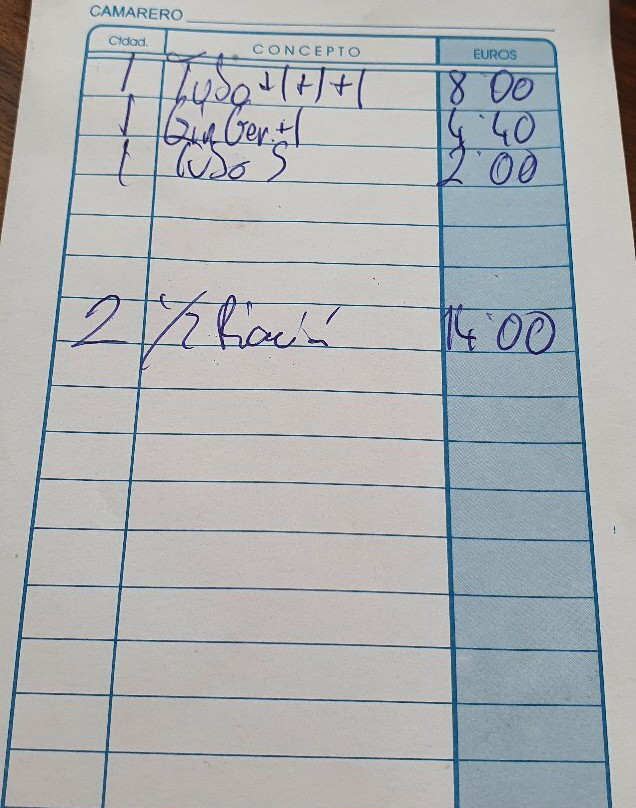 CAMARERO
Ctdad. CONCEPTO EUROS
1 Tubo +1+1+1 8'00
1 Gin Ger.+1 4'40
1 Tubo S 2'00
2 1/2 14'00